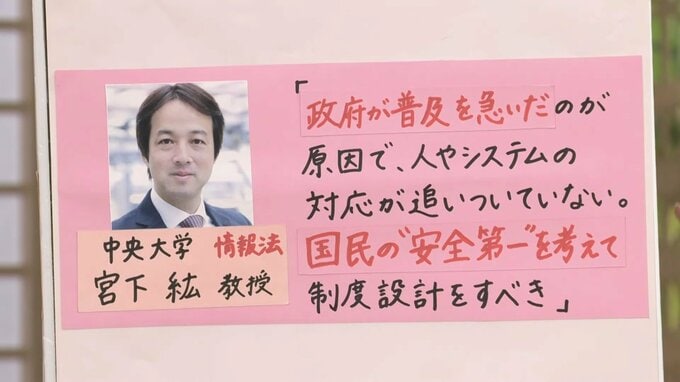 「政府が普及を急いだのが
原因で、人やシステムの
対応が追いついていない。
国民の"安全第一"を考えて
制度設計をすべき」
中央大学 情報法
宮下 紘 教授